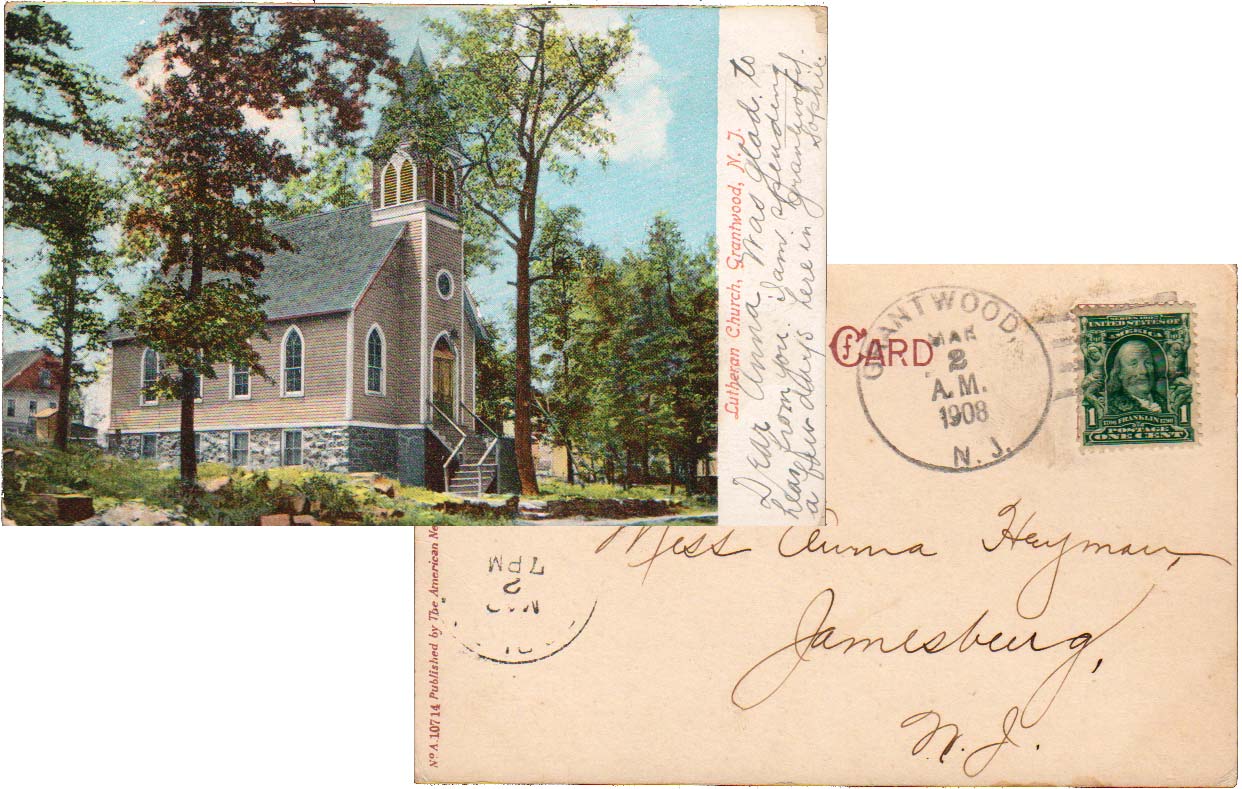 Lutheran Church, Grantwood, N. J.
Dear Anna Was glad to
hear from you. I am spending
a few days here in Grantwood.
Sophie
CARD
GRANTWOOD,
MAR
2
A.M.
1908
N. J.
UNITED STATES OF
AMERICA
1
FRANKLIN
POSTAGE
ONE CENT
1
Miss Anna Heyman,
Jamesburg,
N. J.
7 PM
2
No A. 10714 Published by The American Ne